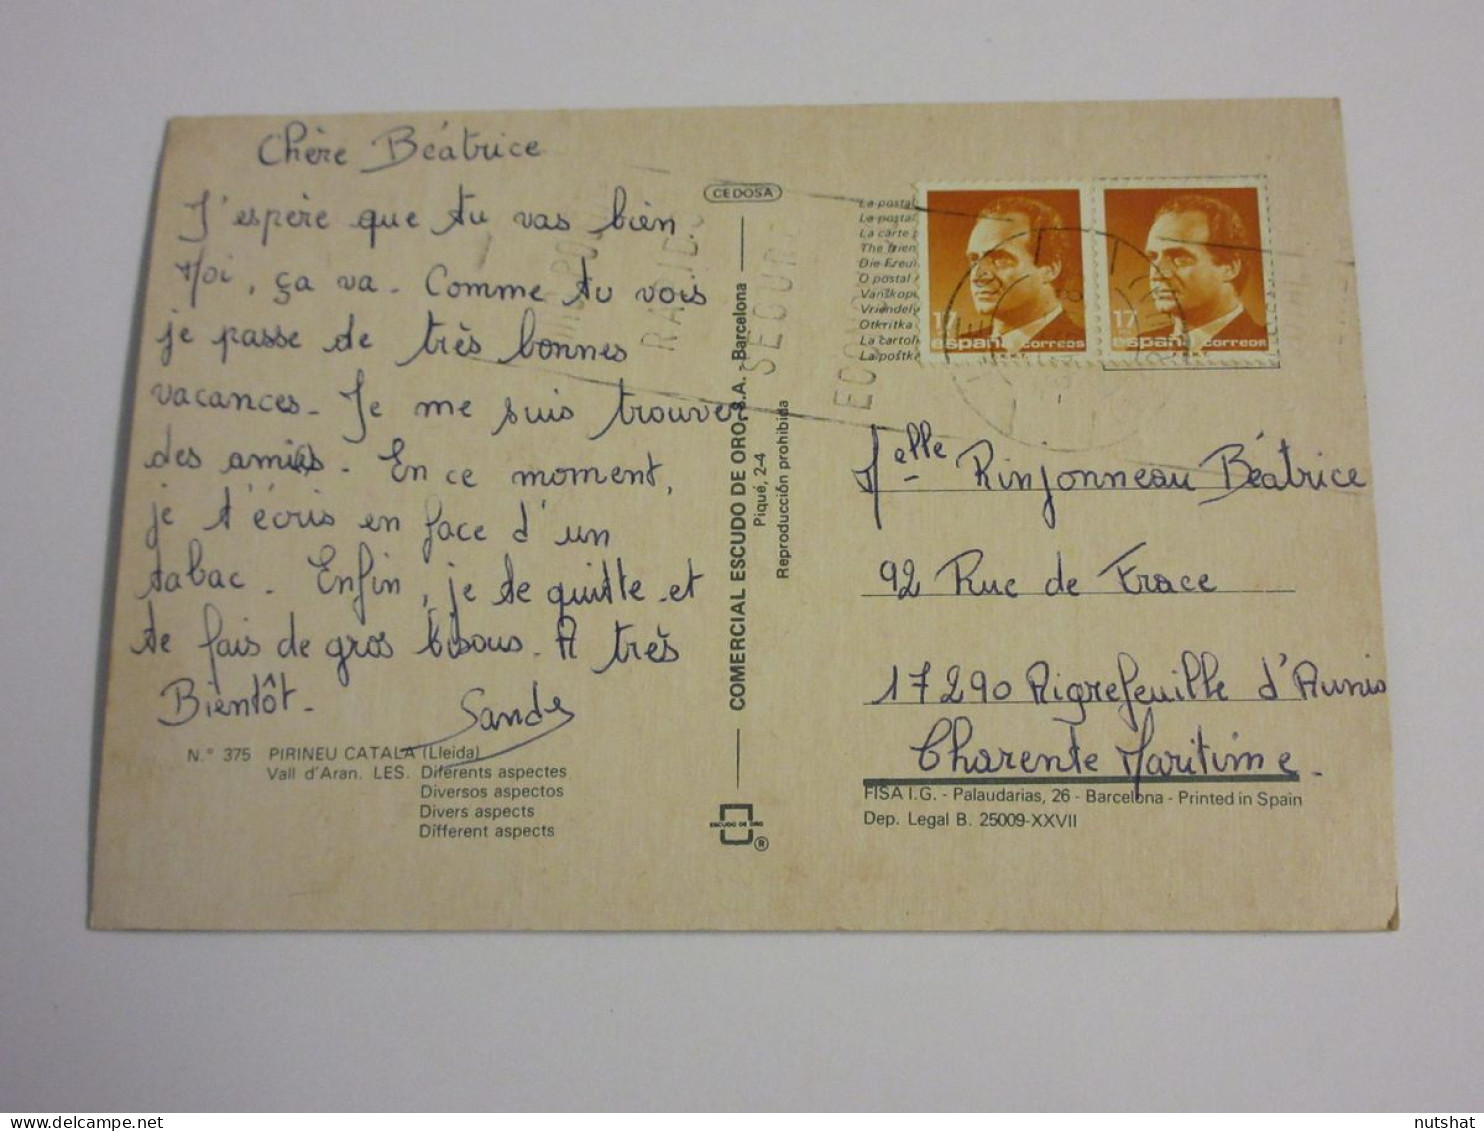 Chère Béatrice
J'espère que tu vas bien
Moi, ça va. Comme tu vois
je passe de très bonnes
vacances. Je me suis trouver
des amies. En ce moment,
je t'écris en face d'un
tabac. Enfin, je te quitte et
te fais de gros bisous. A très
Bientôt.
N.° 375 PIRINEU CATALA (Lleida)
Vall d'Aran. LES. Diferents aspectes
Diversos aspectos
Divers aspects
Different aspects
CEDOSA
COMERCIAL ESCUDO DE ORO, S.A. - Barcelona
Piqué, 2-4
Reproducción prohibida
ESCUDO DE ORO
®
La postal
La postal
La carte
The frien
Die Freu
O postal
Vänskop
Vriendely
Otkritka
La cartol
La poštk
17
españa correos
17
españa correos
RAPIDO
SEGURO
Melle Rinjonneau Béatrice
92 Rue de Frace
17290 Aigrefeuille d'Aunis
Charente Maritime.
FISA I.G. - Palaudarias, 26 - Barcelona - Printed in Spain
Dep. Legal B. 25009-XXVII
nutshat